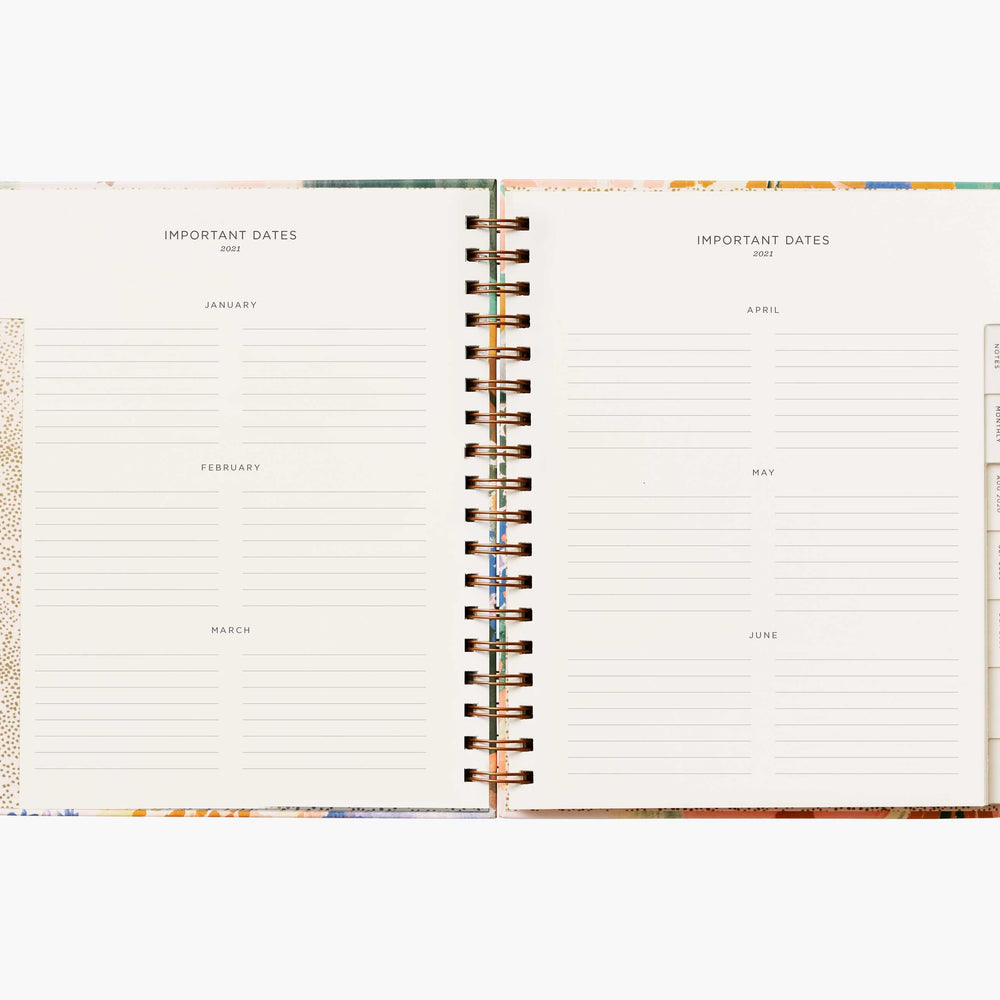 IMPORTANT DATES
2021
JANUARY
FEBRUARY
MARCH
IMPORTANT DATES
2021
APRIL
MAY
JUNE
NOTES
MONTHLY
AUG 2020